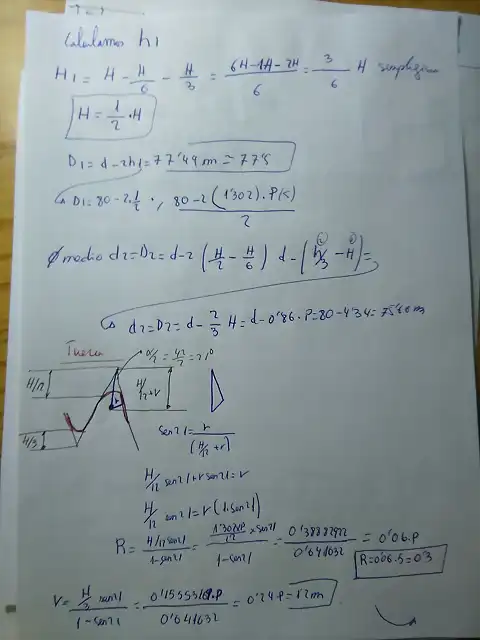 Calculamos h1
H1 = H - H/6 - H/3 = 6H-1H-2H/6 = 3/6 H
H = 1/2 · H
D1 = d-2h1 = 77'49 m = 77'5
D1 = 80-2·1/2 · , 80-2(1'302)·P(5)/2
Ø medio d2=D2= d-2 (H/2 - H/6) d-(H/3 - H)=
d2=D2= d- 2/3 H = d-0'86·P=80-4'34=
Tuerca
α/2 = 42/2 = 21°
H/12
H/12+r
H/3
sen21= r/(H/12 + r)
H/12 sen21+r sen21=r
H/12 sen21=r(1-sen21)
R = H/12 sen21/1-sen21 = 1'302·P/12 × sen21/1-sen21 = 0'38882922/0'641632 = 0'06·P
R=0'06·5=0'3
r= H/3 sen21/1-sen21 = ·P/0'641632 = 0'24P=1'2m